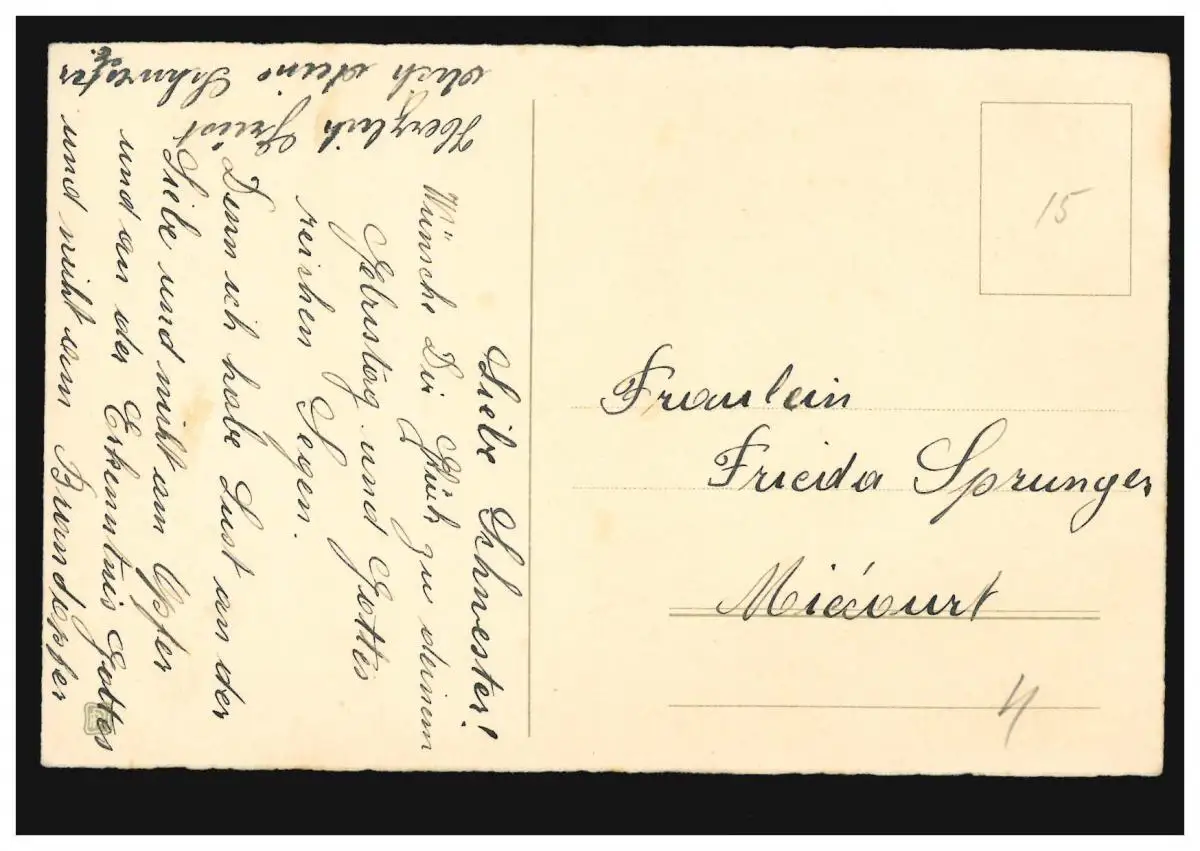 Liebe Schwester!
Wünsche Dir Glück zu deinem
Gebrstag und Gottes
reichen Segen.
Denn ich habe Lust an der
Liebe und nicht am Opfer
und an der Erkenntnis Gottes
und nicht am Brandopfer
Herzlich Grüst
dich deine Schwester
Fraulein
Frieda Sprunger
Miécourt
15
4